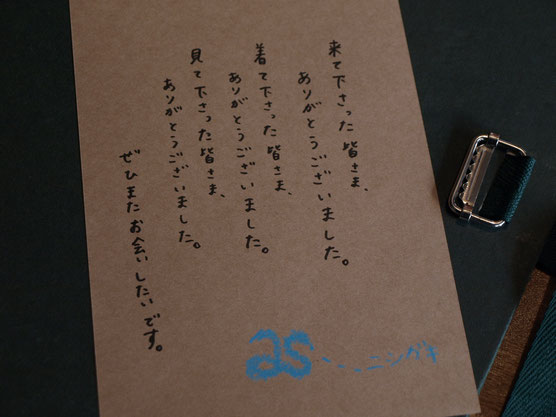 来て下さった皆さま、
ありがとうございました。
着て下さった皆さま、
ありがとうございました。
見て下さった皆さま、
ありがとうございました。
ぜひまたお会いしたいです。
as
ニシガキ